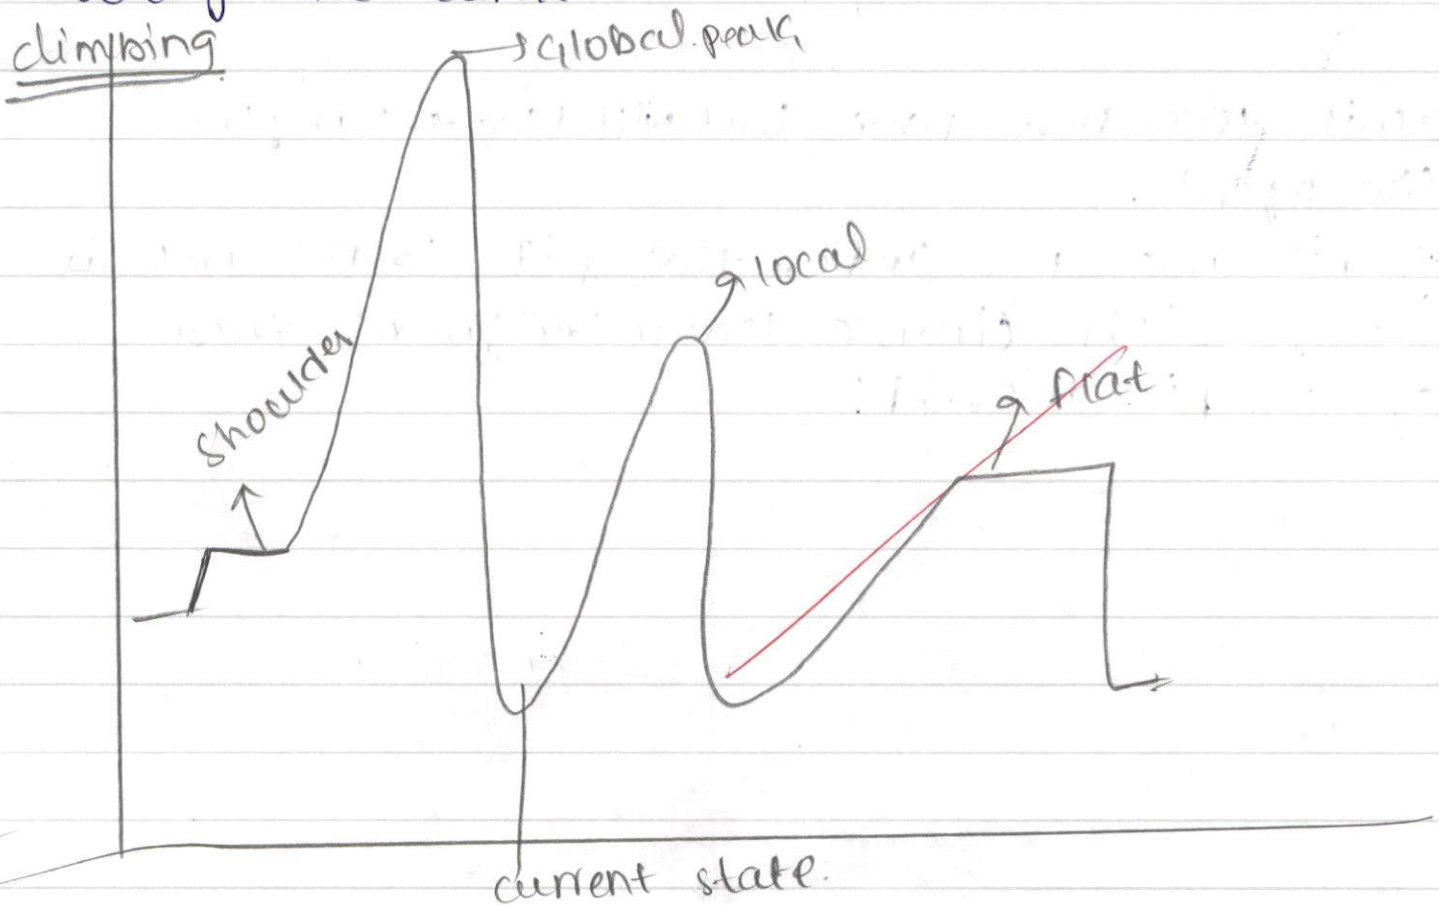 climbing
Global peak
local
shoulder
flat
current state.